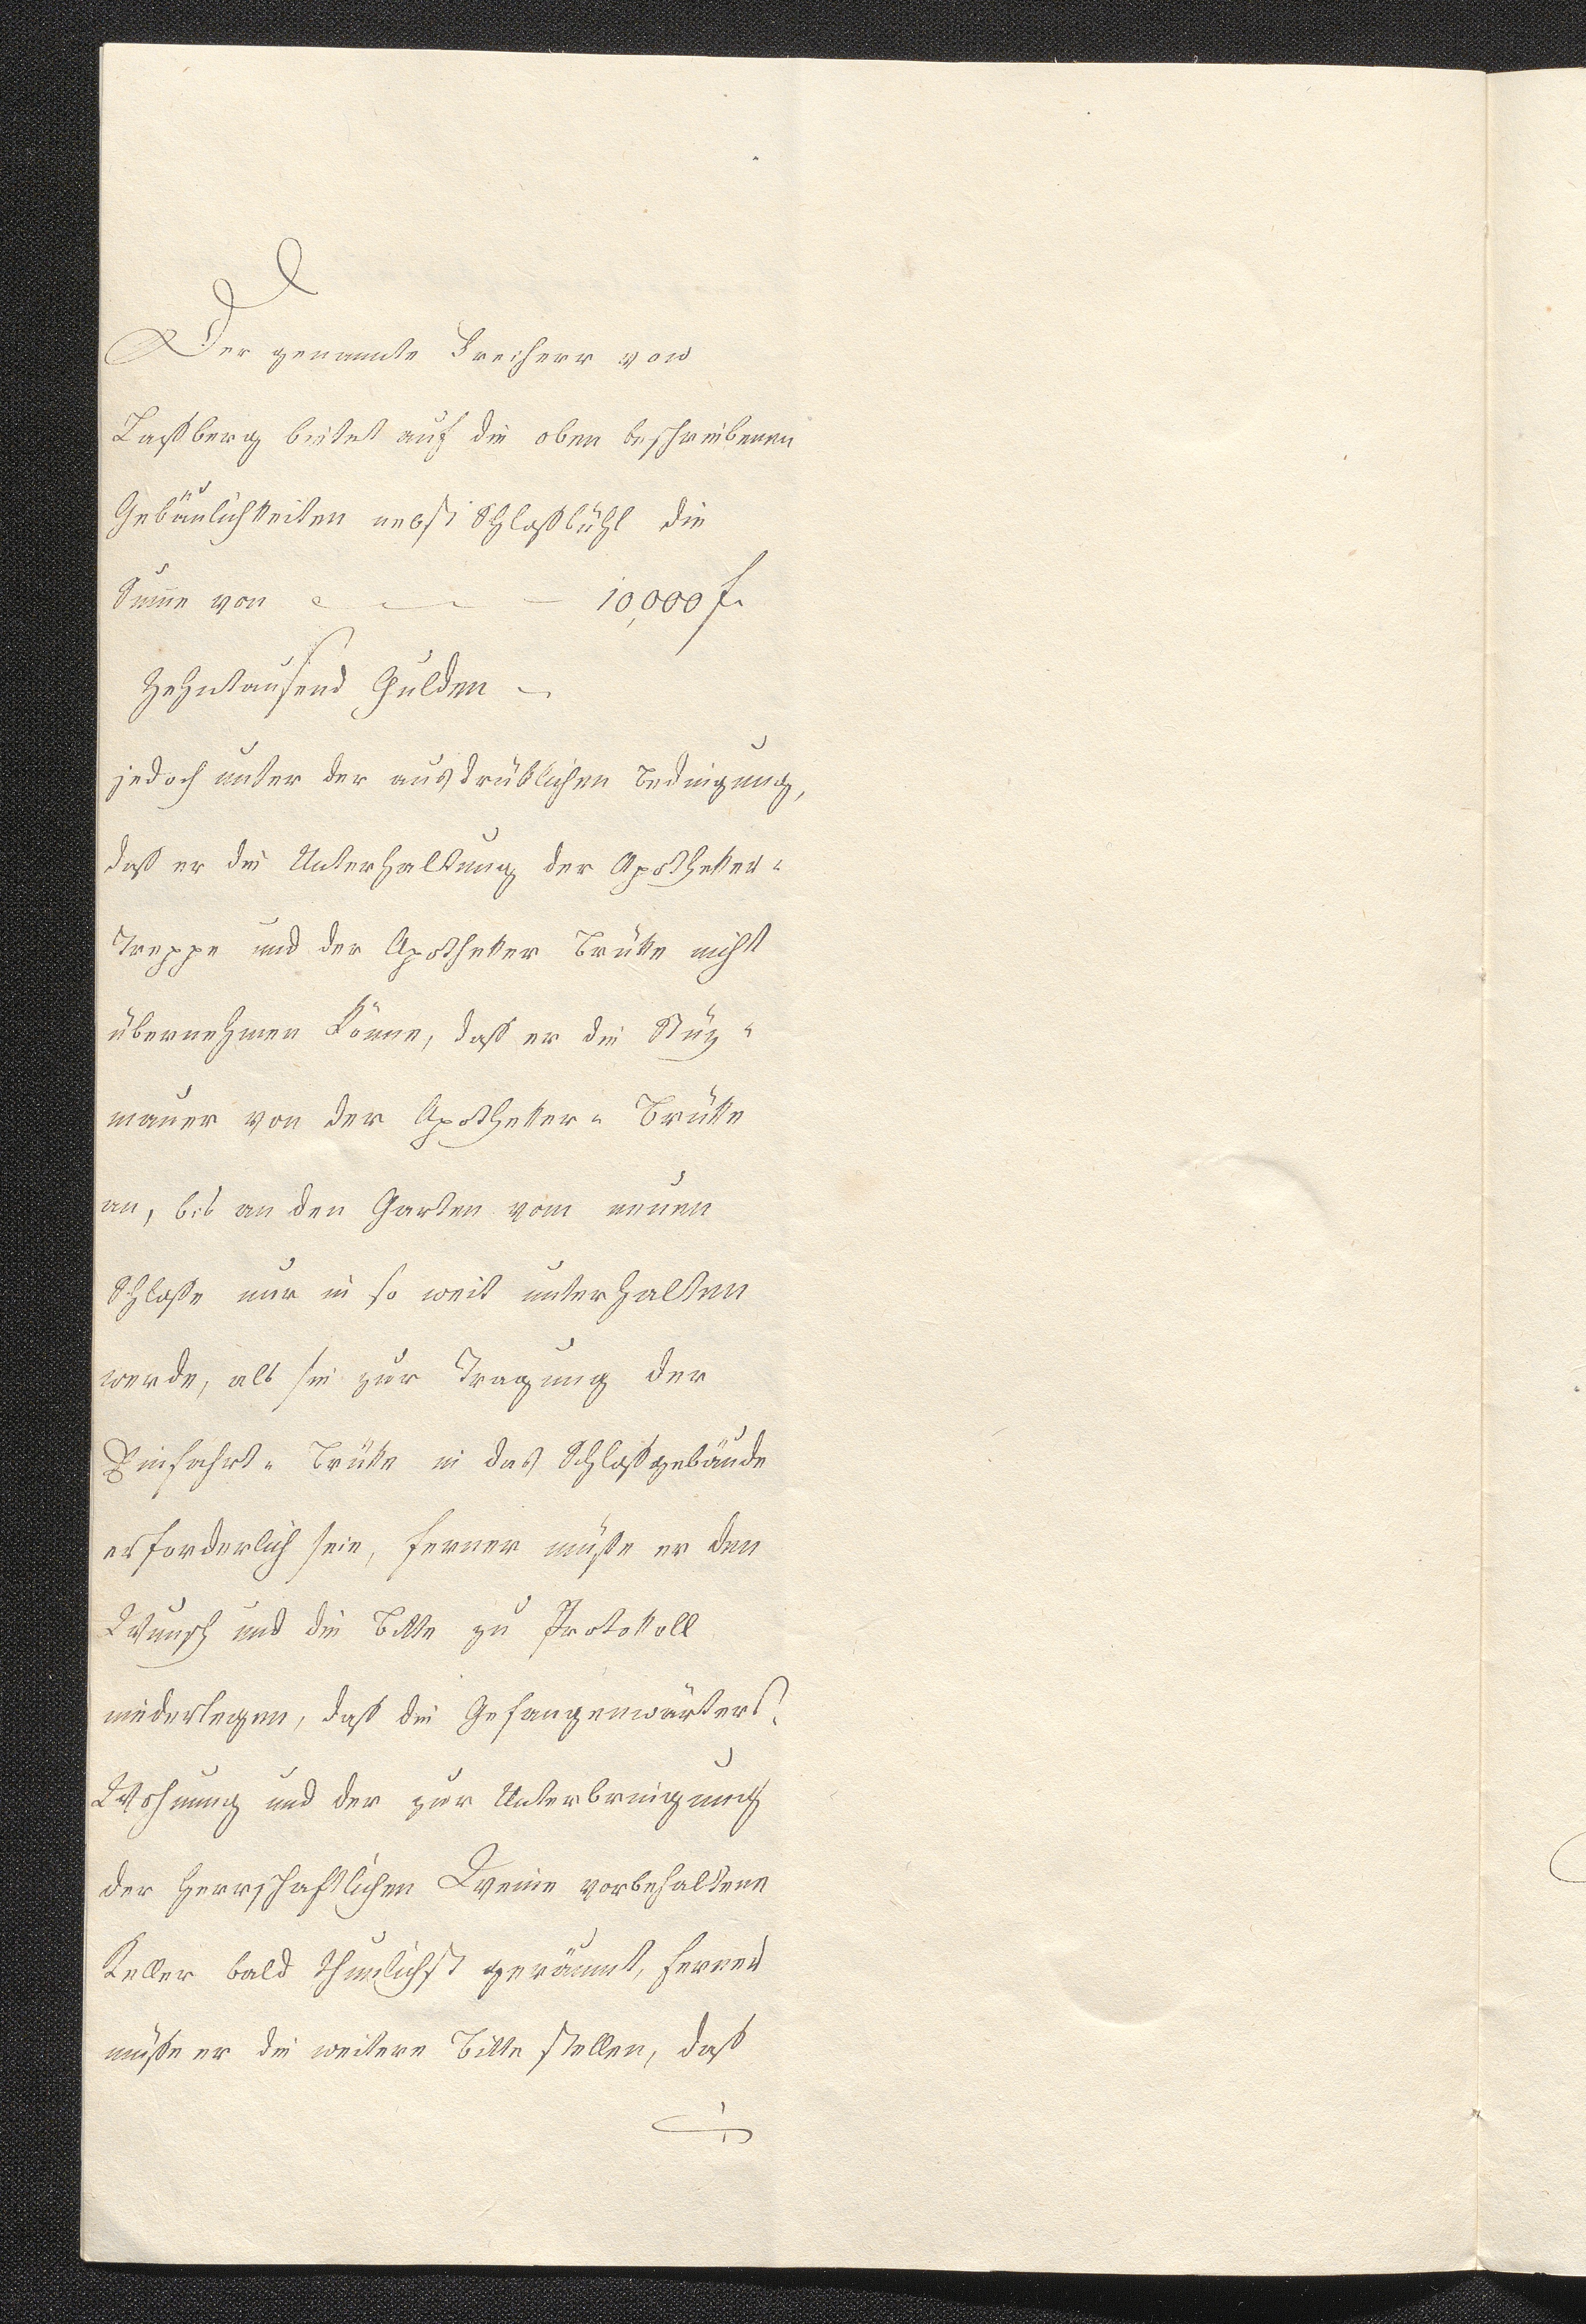 Der genannte Freiherr von
Laßberg bietet auf die oben beschriebenen
Gebäulichkeiten nebst Schloßbühl die
Sume von — — — 10,000 f.
Zehntausend Gulden —
jedoch unter der ausdrüklichen Bedingung,
daß er die Unterhaltung der Apotheker-
Treppe und der Apotheker Brüke nicht
übernehmen könne, daß er die Stüz-
mauer von der Apotheker-Brüke
an, bis an den Garten vom neuen
Schloße nur in so weit unterhalten
werde, als sie zur Tragung der
Einfahrt-Brüke in das Schloßgebäude
erforderlich seie, ferner müße er den
Wunsch und die Bitte zu Protokoll
niederlegen, daß die Gefangenwärters-
Wohnung und der zur Unterbringung
der Herrschaftlichen Weine vorbehaltene
Keller bald thunlichst geräumt, ferner
müße er die weitere Bitte stellen, daß